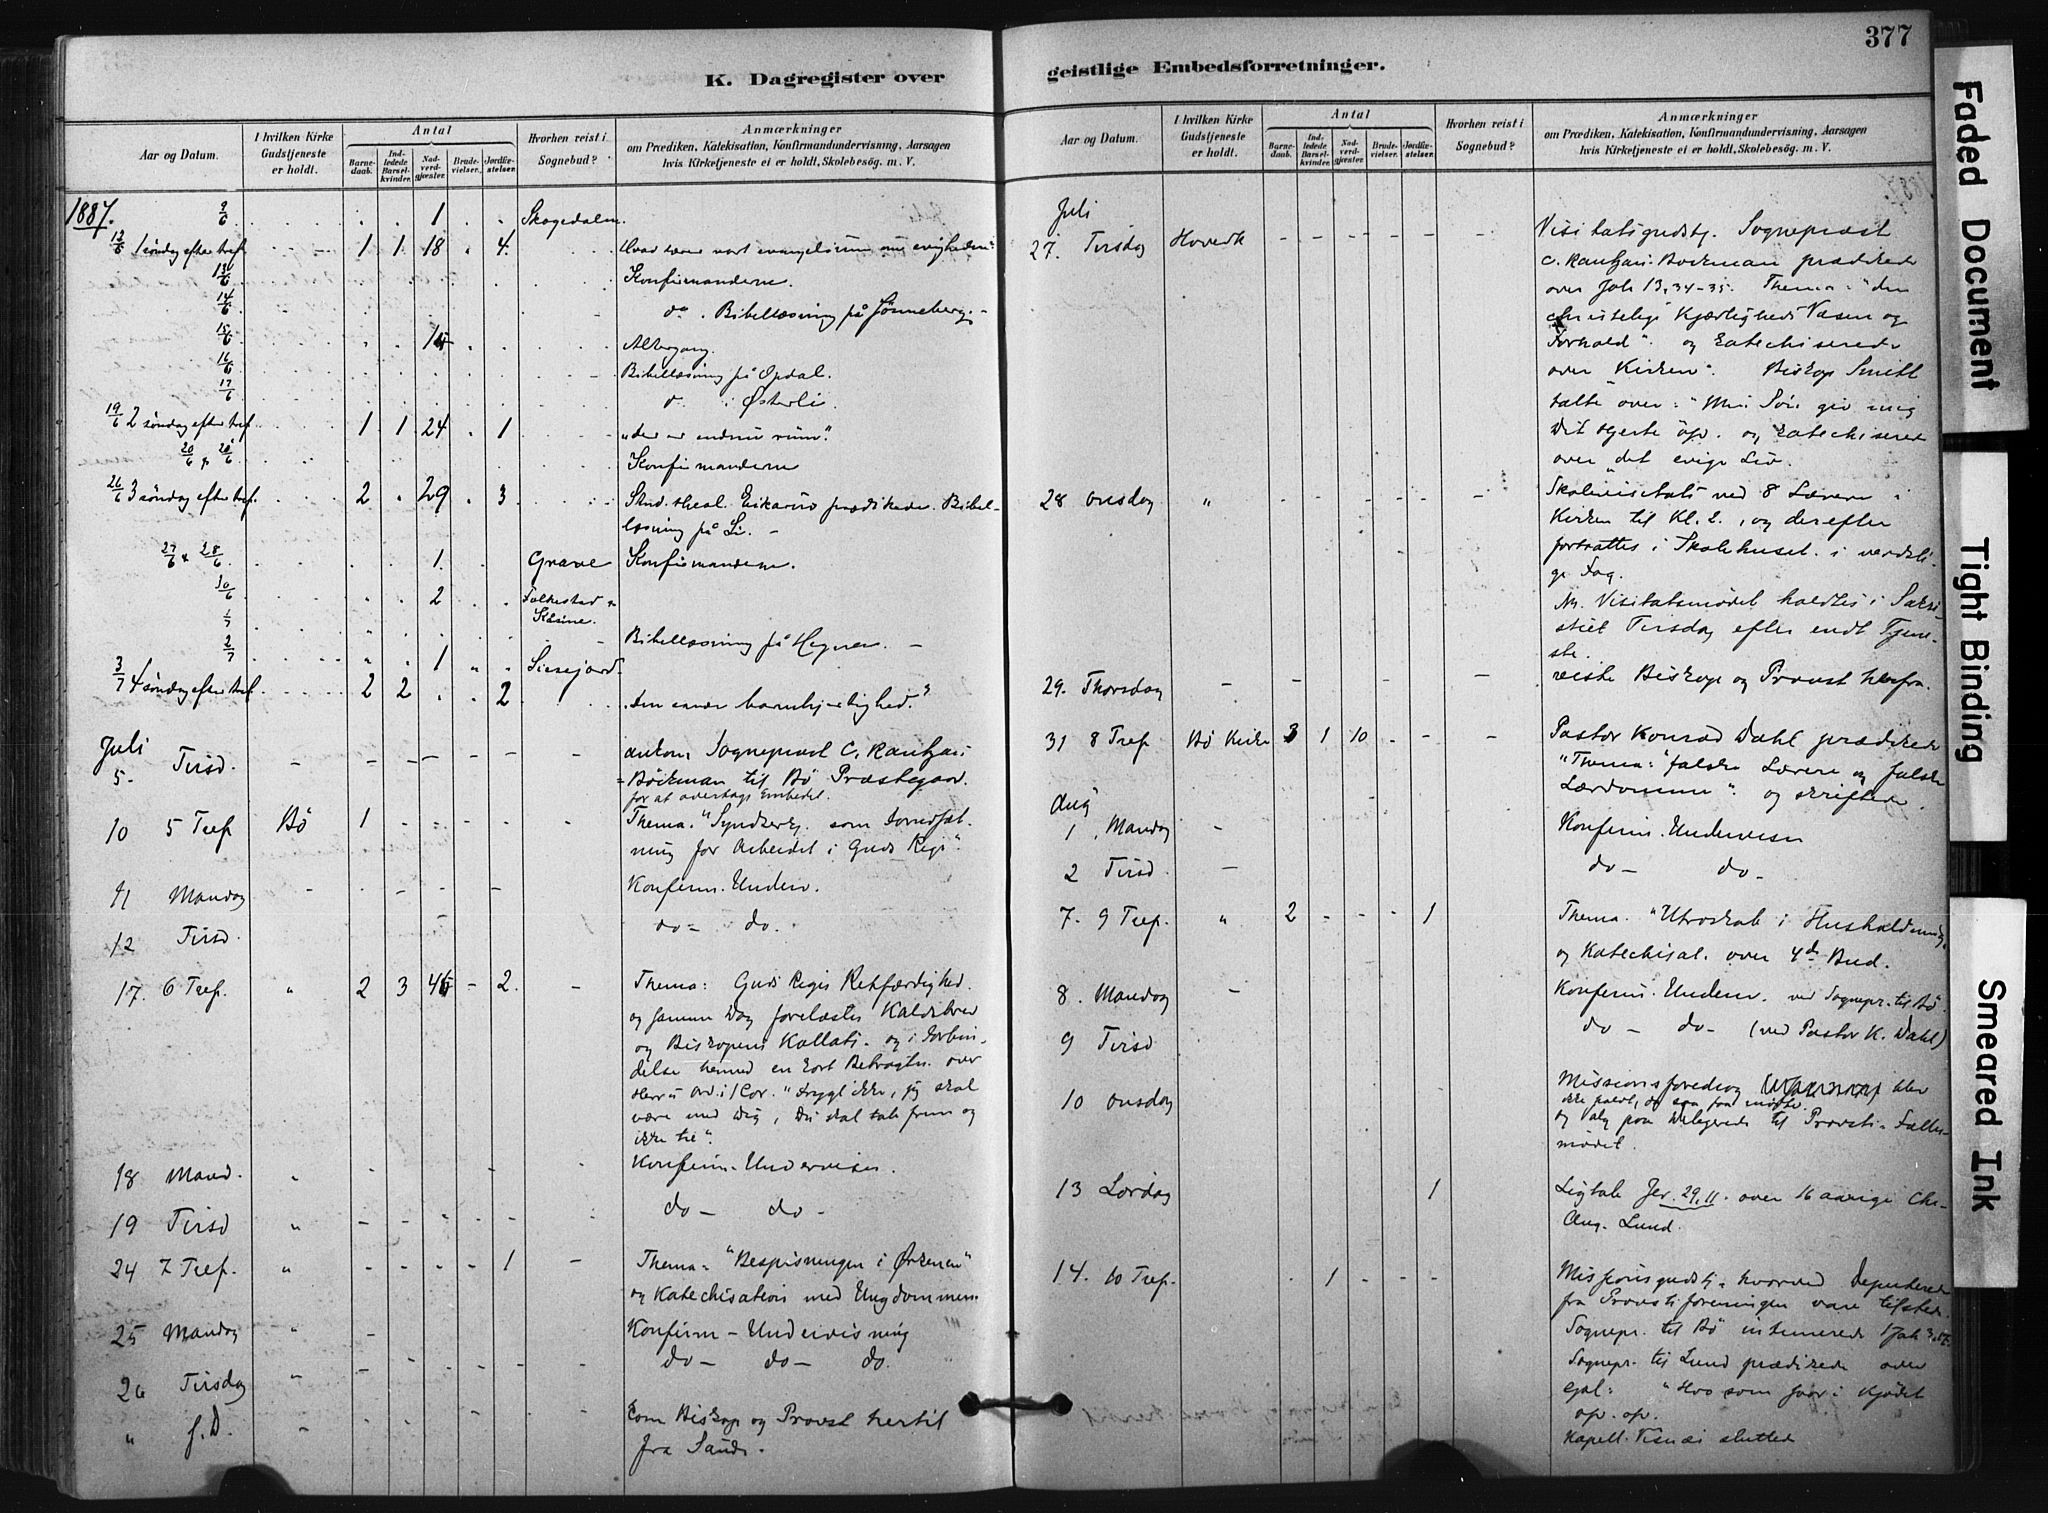 377
K. Dagregister over
geistlige Embedsforretninger.
Aar og Datum.
I hvilken Kirke Gudstjeneste er holdt.
Antal
Barnedaab.
Indledede Barselkvinder.
Nadverdgjæster.
Brudevielser.
Jordfæstelser.
Hvorhen reist i Sognebud?
Anmærkninger
om Prædiken, Katekisation, Konfirmandundervisning, Aarsagen
hvis Kirketjeneste ei er holdt, Skolebesøg. m. V.
1887. 9/6 1 Skogedalen
12/6 1 søndag efter tref. 1 1 18 4 Hvad lærer vort evangelium om evigheden
13/6 Konfirmanderne.
14/6 do. Bibellæsning på Jønneberg.
15/6 Altergang.
16/6 Bibellæsning på Opdal.
17/6 do i Østerli.
19/6 2 søndag efter tref. 1 1 24 1 "der er endnu rum".
20/6 Konfirmanderne
26/6 3 søndag efter tref. 2 29 3 Stud. theol. prædikede. Bibel-
læsning på Li.
27/6 & 28/6 1 Grave Konfirmanderne.
30/6 2 Folkestad
1/7
2/7 Bibellæsning på Hegnar.
1
3/7 4 søndag efter tref. 2 2 2 barmhjertighed."
Juli
5. Tirsd. ankom Sognepræst C.
Böckman til Bø Præstegaard
for at overtage Embedet.
10 5 Tref Bø 1 Thema. som
ning for Arbeidet i Guds Rige".
11 Mandag Konfirm. Underv.
12 Tirsd. do do.
17. 6 Tref. " 2 3 2. Thema: Guds Riges Retfærdighed.
og samme Dag forelæstes Kaldsbrev
og Biskopens Kollats. og i Forbin-
delse hermed en kort Betragtn. over
Herrens Ord i 1 Cor. "Frygt ikke, jeg skal
være med Dig, Du skal tale frem og
ikke tie".
18 Mand. " Konfirm. Undervisn.
19 Tirsd " do do
24 7 Tref. " 1 Thema: "Bespisningen i Ørkenen"
og Katechisation med Ungdommen.
25 Mandag " Konfirm - Undervisning
26 Tirsdag " do do do.
" s. D. kom Biskop og Provst hertil
fra Saude.
Aar og Datum.
I hvilken Kirke Gudstjeneste er holdt.
Antal
Barnedaab.
Indledede Barselkvinder.
Nadverdgjæster.
Brudevielser.
Jordfæstelser.
Hvorhen reist i Sognebud?
Anmærkninger
om Prædiken, Katekisation, Konfirmandundervisning, Aarsagen
hvis Kirketjeneste ei er holdt, Skolebesøg. m. V.
Juli
27. Tirsdag Hovedk Visitatsgudstj. Sognepræst
C. Böckman prædikede
over Joh 13, 34-35. Thema: "den
christelige Kjærligheds Væsen og
Forhold". og katechiserede
over "Kirken". Biskop Smitt
talte over: "Min Søn giv mig
dit Hjerte op. og katechiserede
over "det evige Liv.
28 Onsdag " Skolevisitats ved 8 Lærere i
Kirken til Kl. 2., og derefter
fortsattes i Skolehuset. i verdsli-
ge Fag.
Visitatsmødet holdtes i Sakri-
stiet Tirsdag efter endt Tjene-
ste.
29. Thorsdag reiste Biskop og Provst herfra.
31 8 Tref Bø Kirke 3 1 10 Pastor Konrad Dahl prædikede
"Thema: "falske Lærere og falske
Lærdomme". og skriftede.
Aug
1. Mandag Konfirm. Undervisn
2 Tirsd. do do
7. 9 Tref. " 2 1 Thema. "Utroskab i Husholdning.
og Katechisat. over 4de Bud.
8. Mandag Konfirm. Underv. ved Sognepr. til Bø
9 Tirsd do do (ved Pastor K. Dahl)
10 Onsdag Missionsforedrag blev
ikke holdt, da saa faa mødte.
og Valg paa Delegerede til Provsti-Fælles-
mødet.
13 Lørdag 1 Ligtale Jer. 29,11. over 16 aarige Chr.
Aug. Lund.
14. 10 Tref. 1 Missionsgudstj. hvorved Deputerede
fra Provstiforeningen vare tilstede.
Sognepr. til Bø intimerede
Sognepr. til Lund prædikede over
Gal: "Hvo som saar i Kjødet
op. op.
Kapell. sluttede
Faded Document
Tight Binding
Smeared Ink